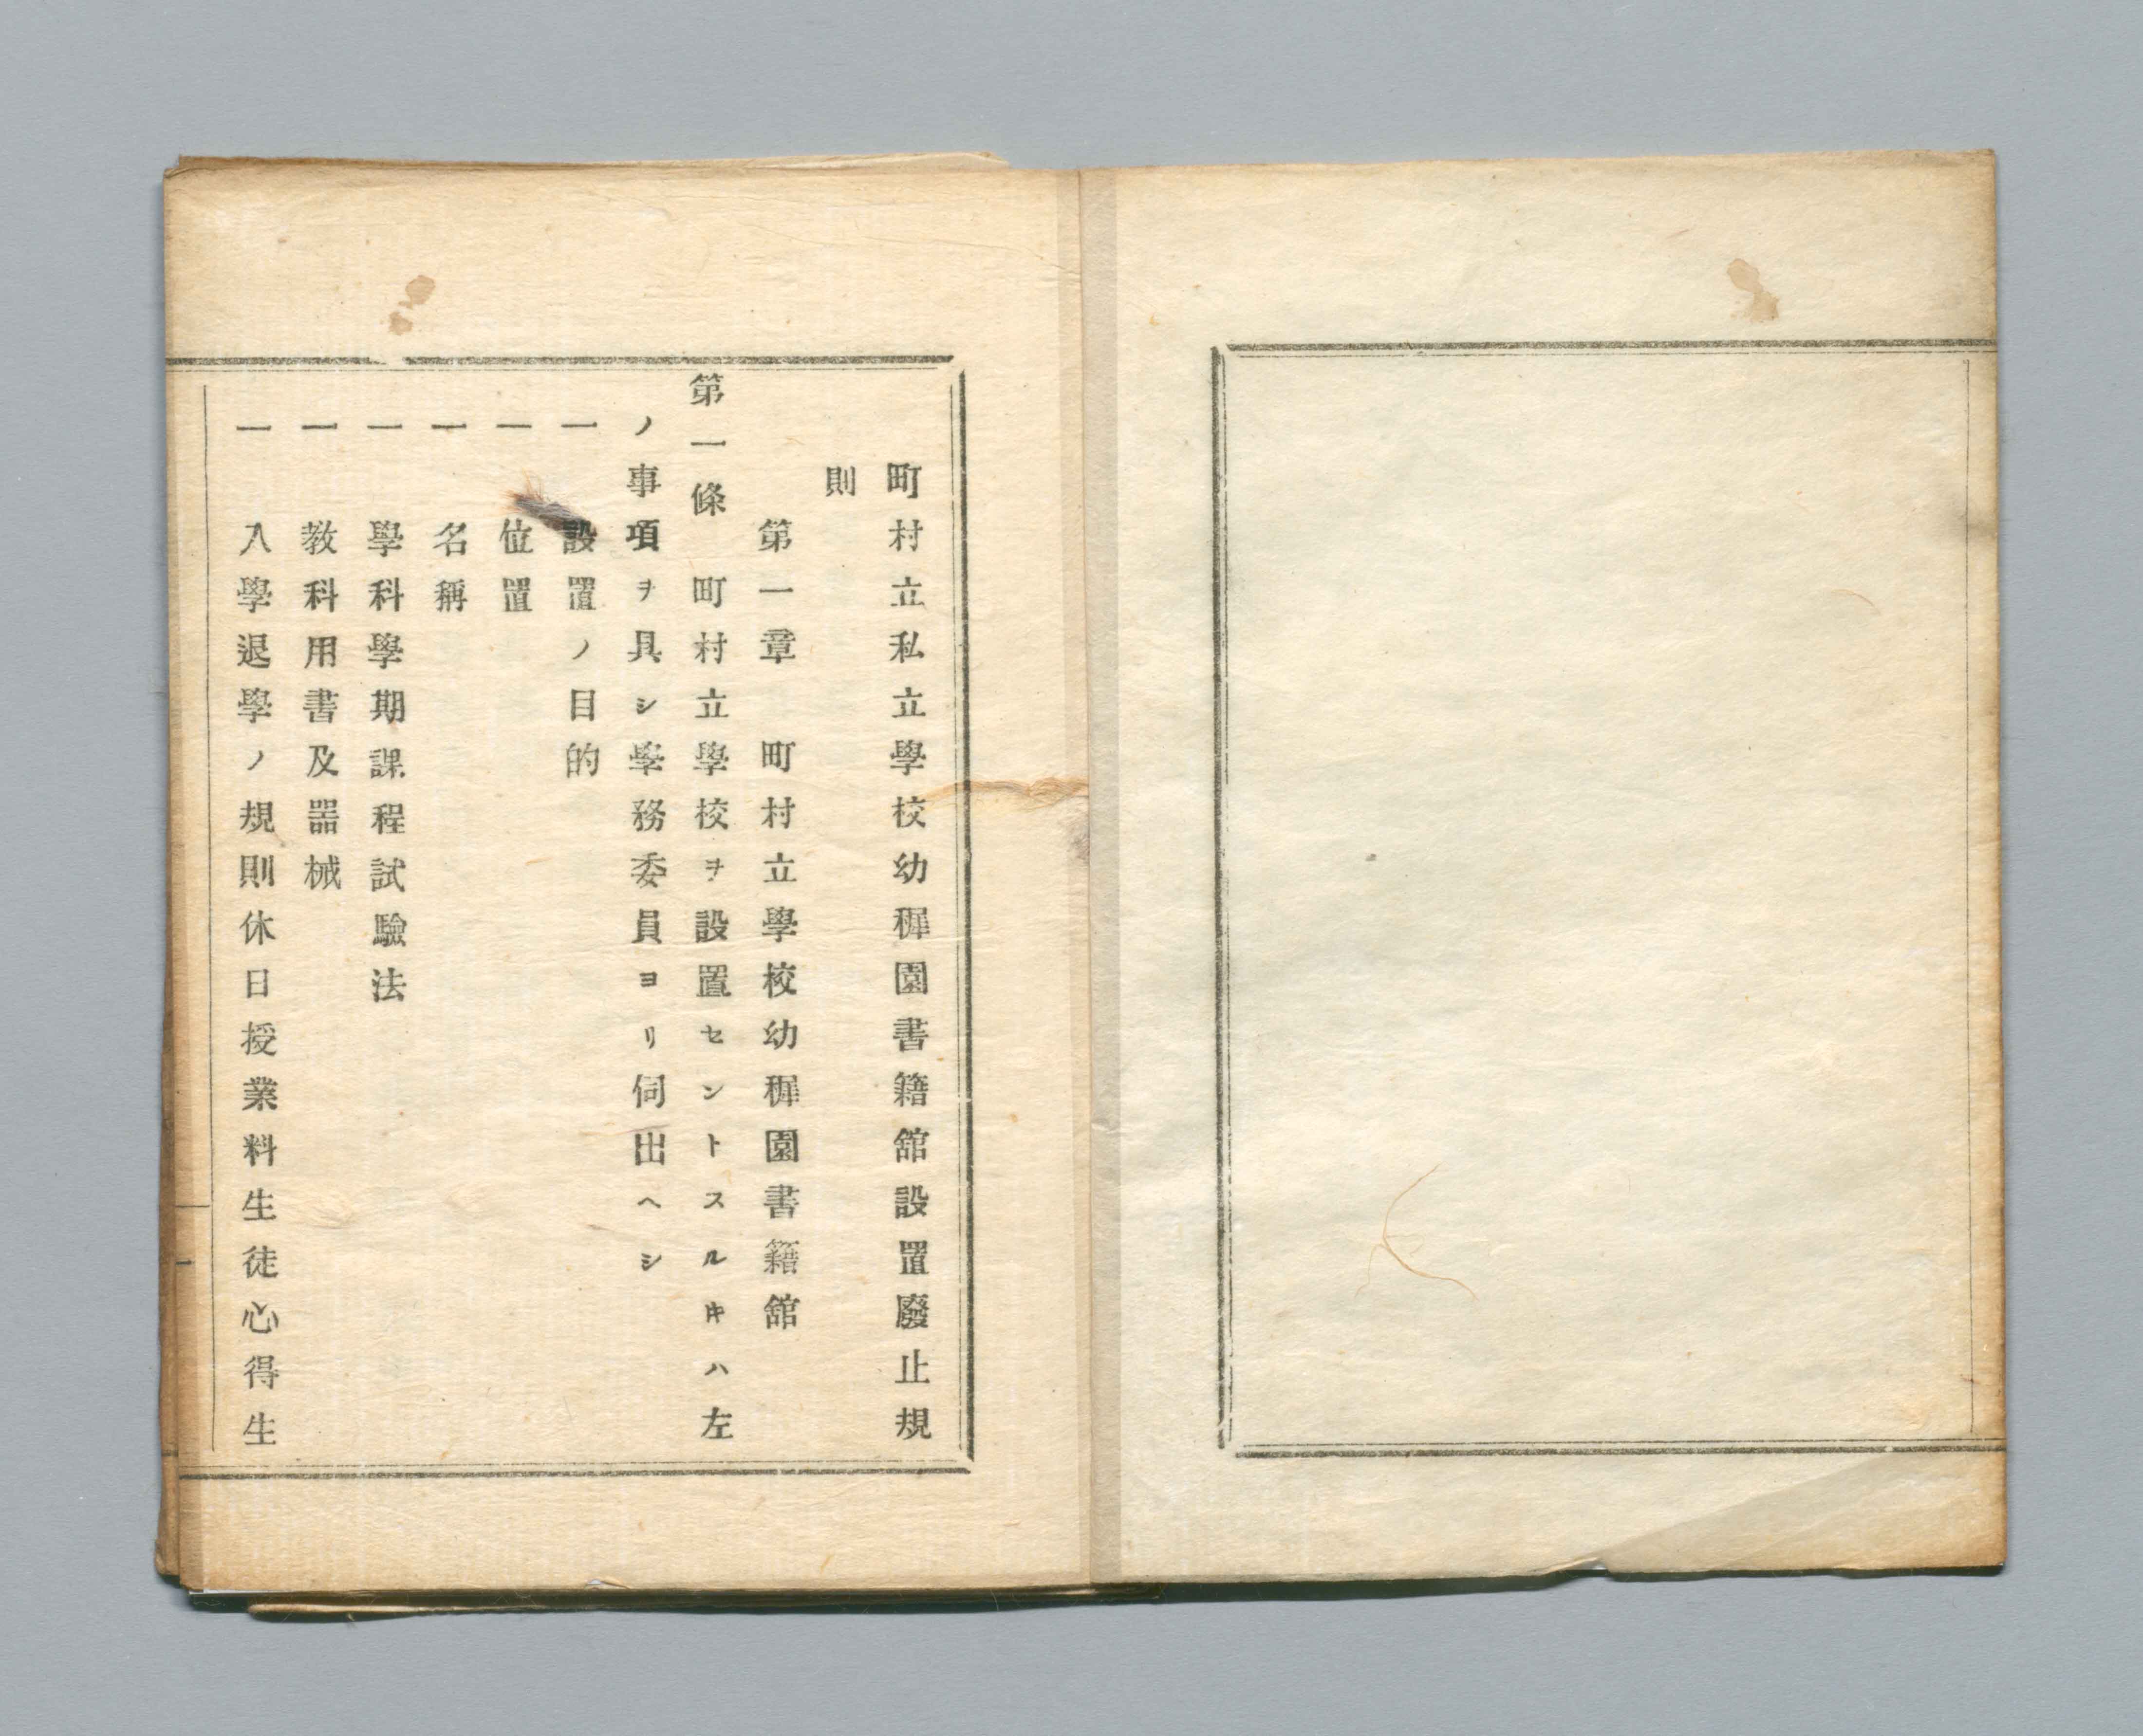 町村立私立學校幼穉園書籍舘設置廢止規
則
第一章　町村立學校幼穉園書籍舘
第一條　町村立學校ヲ設置セントスルキハ左
ノ事項ヲ具シ學務委員ヨリ伺出ヘシ
一　設置ノ目的
一　位置
一　名稱
一　學科學期課程試驗法
一　教科用書及器械
一　入學退學ノ規則休日授業料生徒心得生